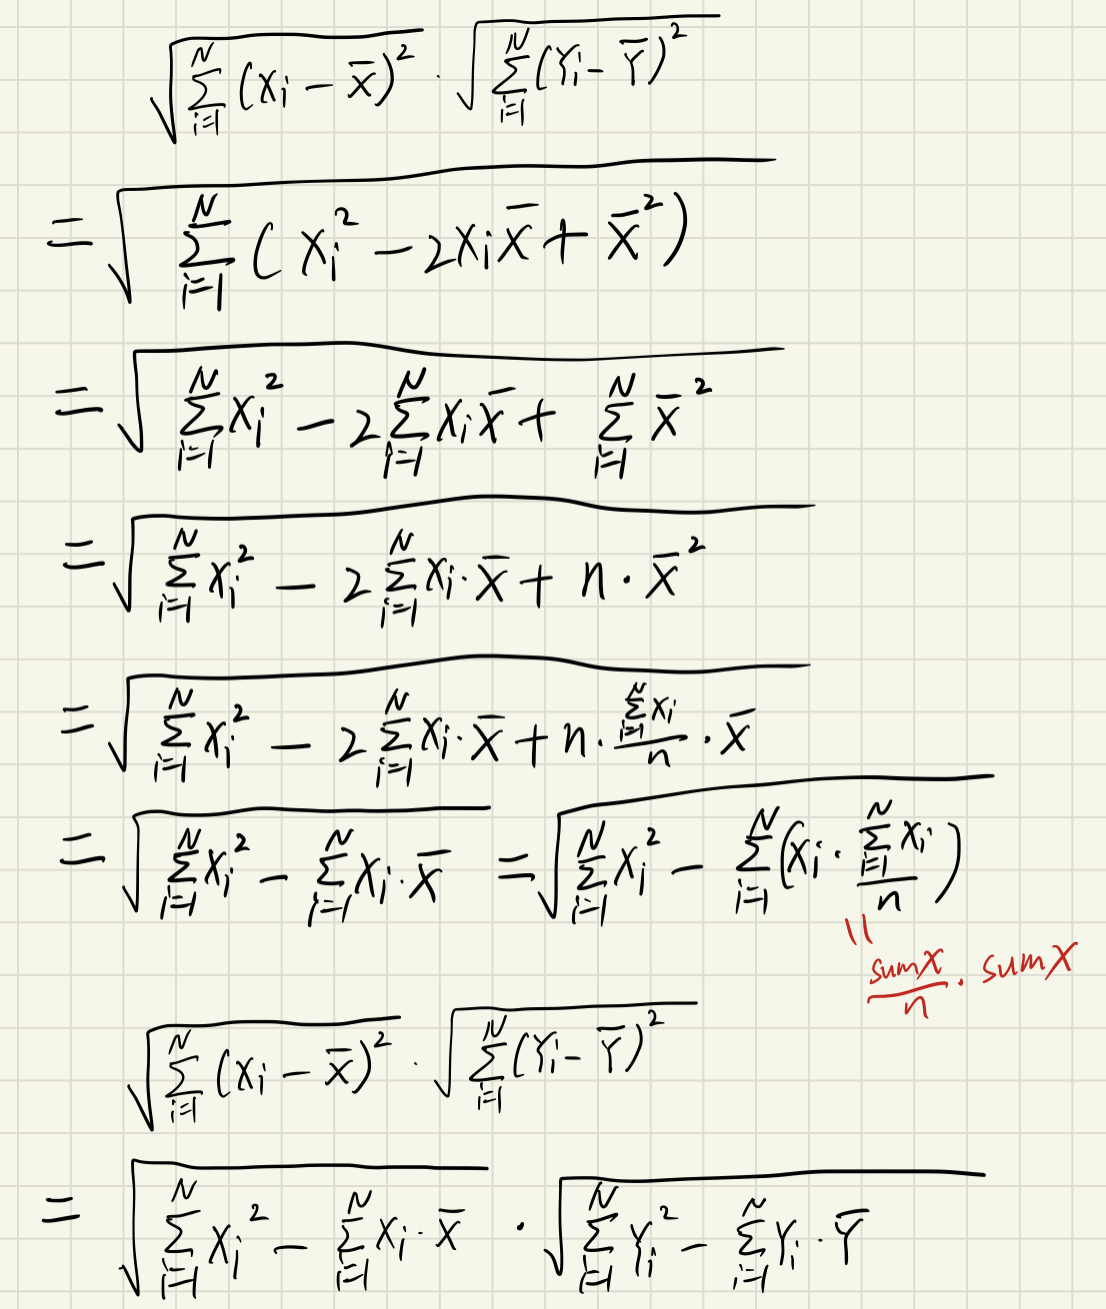 √(∑_{i=1}^{N} (X_i − X̄)²) · √(∑_{i=1}^{N} (Y_i − Ȳ)²)
= √(∑_{i=1}^{N} (X_i² − 2X_i X̄ + X̄²))
= √(∑_{i=1}^{N} X_i² − 2∑_{i=1}^{N} X_i X̄ + ∑_{i=1}^{N} X̄²)
= √(∑_{i=1}^{N} X_i² − 2∑_{i=1}^{N} X_i · X̄ + n · X̄²)
= √(∑_{i=1}^{N} X_i² − 2∑_{i=1}^{N} X_i · X̄ + n · (∑_{i=1}^{N} X_i)/n · X̄)
= √(∑_{i=1}^{N} X_i² − ∑_{i=1}^{N} X_i · X̄) = √(∑_{i=1}^{N} X_i² − ∑_{i=1}^{N} (X_i · (∑_{i=1}^{N} X_i)/n))
= sumX/n · sumX
√(∑_{i=1}^{N} (X_i − X̄)²) · √(∑_{i=1}^{N} (Y_i − Ȳ)²)
= √(∑_{i=1}^{N} X_i² − ∑_{i=1}^{N} X_i · X̄) · √(∑_{i=1}^{N} Y_i² − ∑_{i=1}^{N} Y_i · Ȳ)